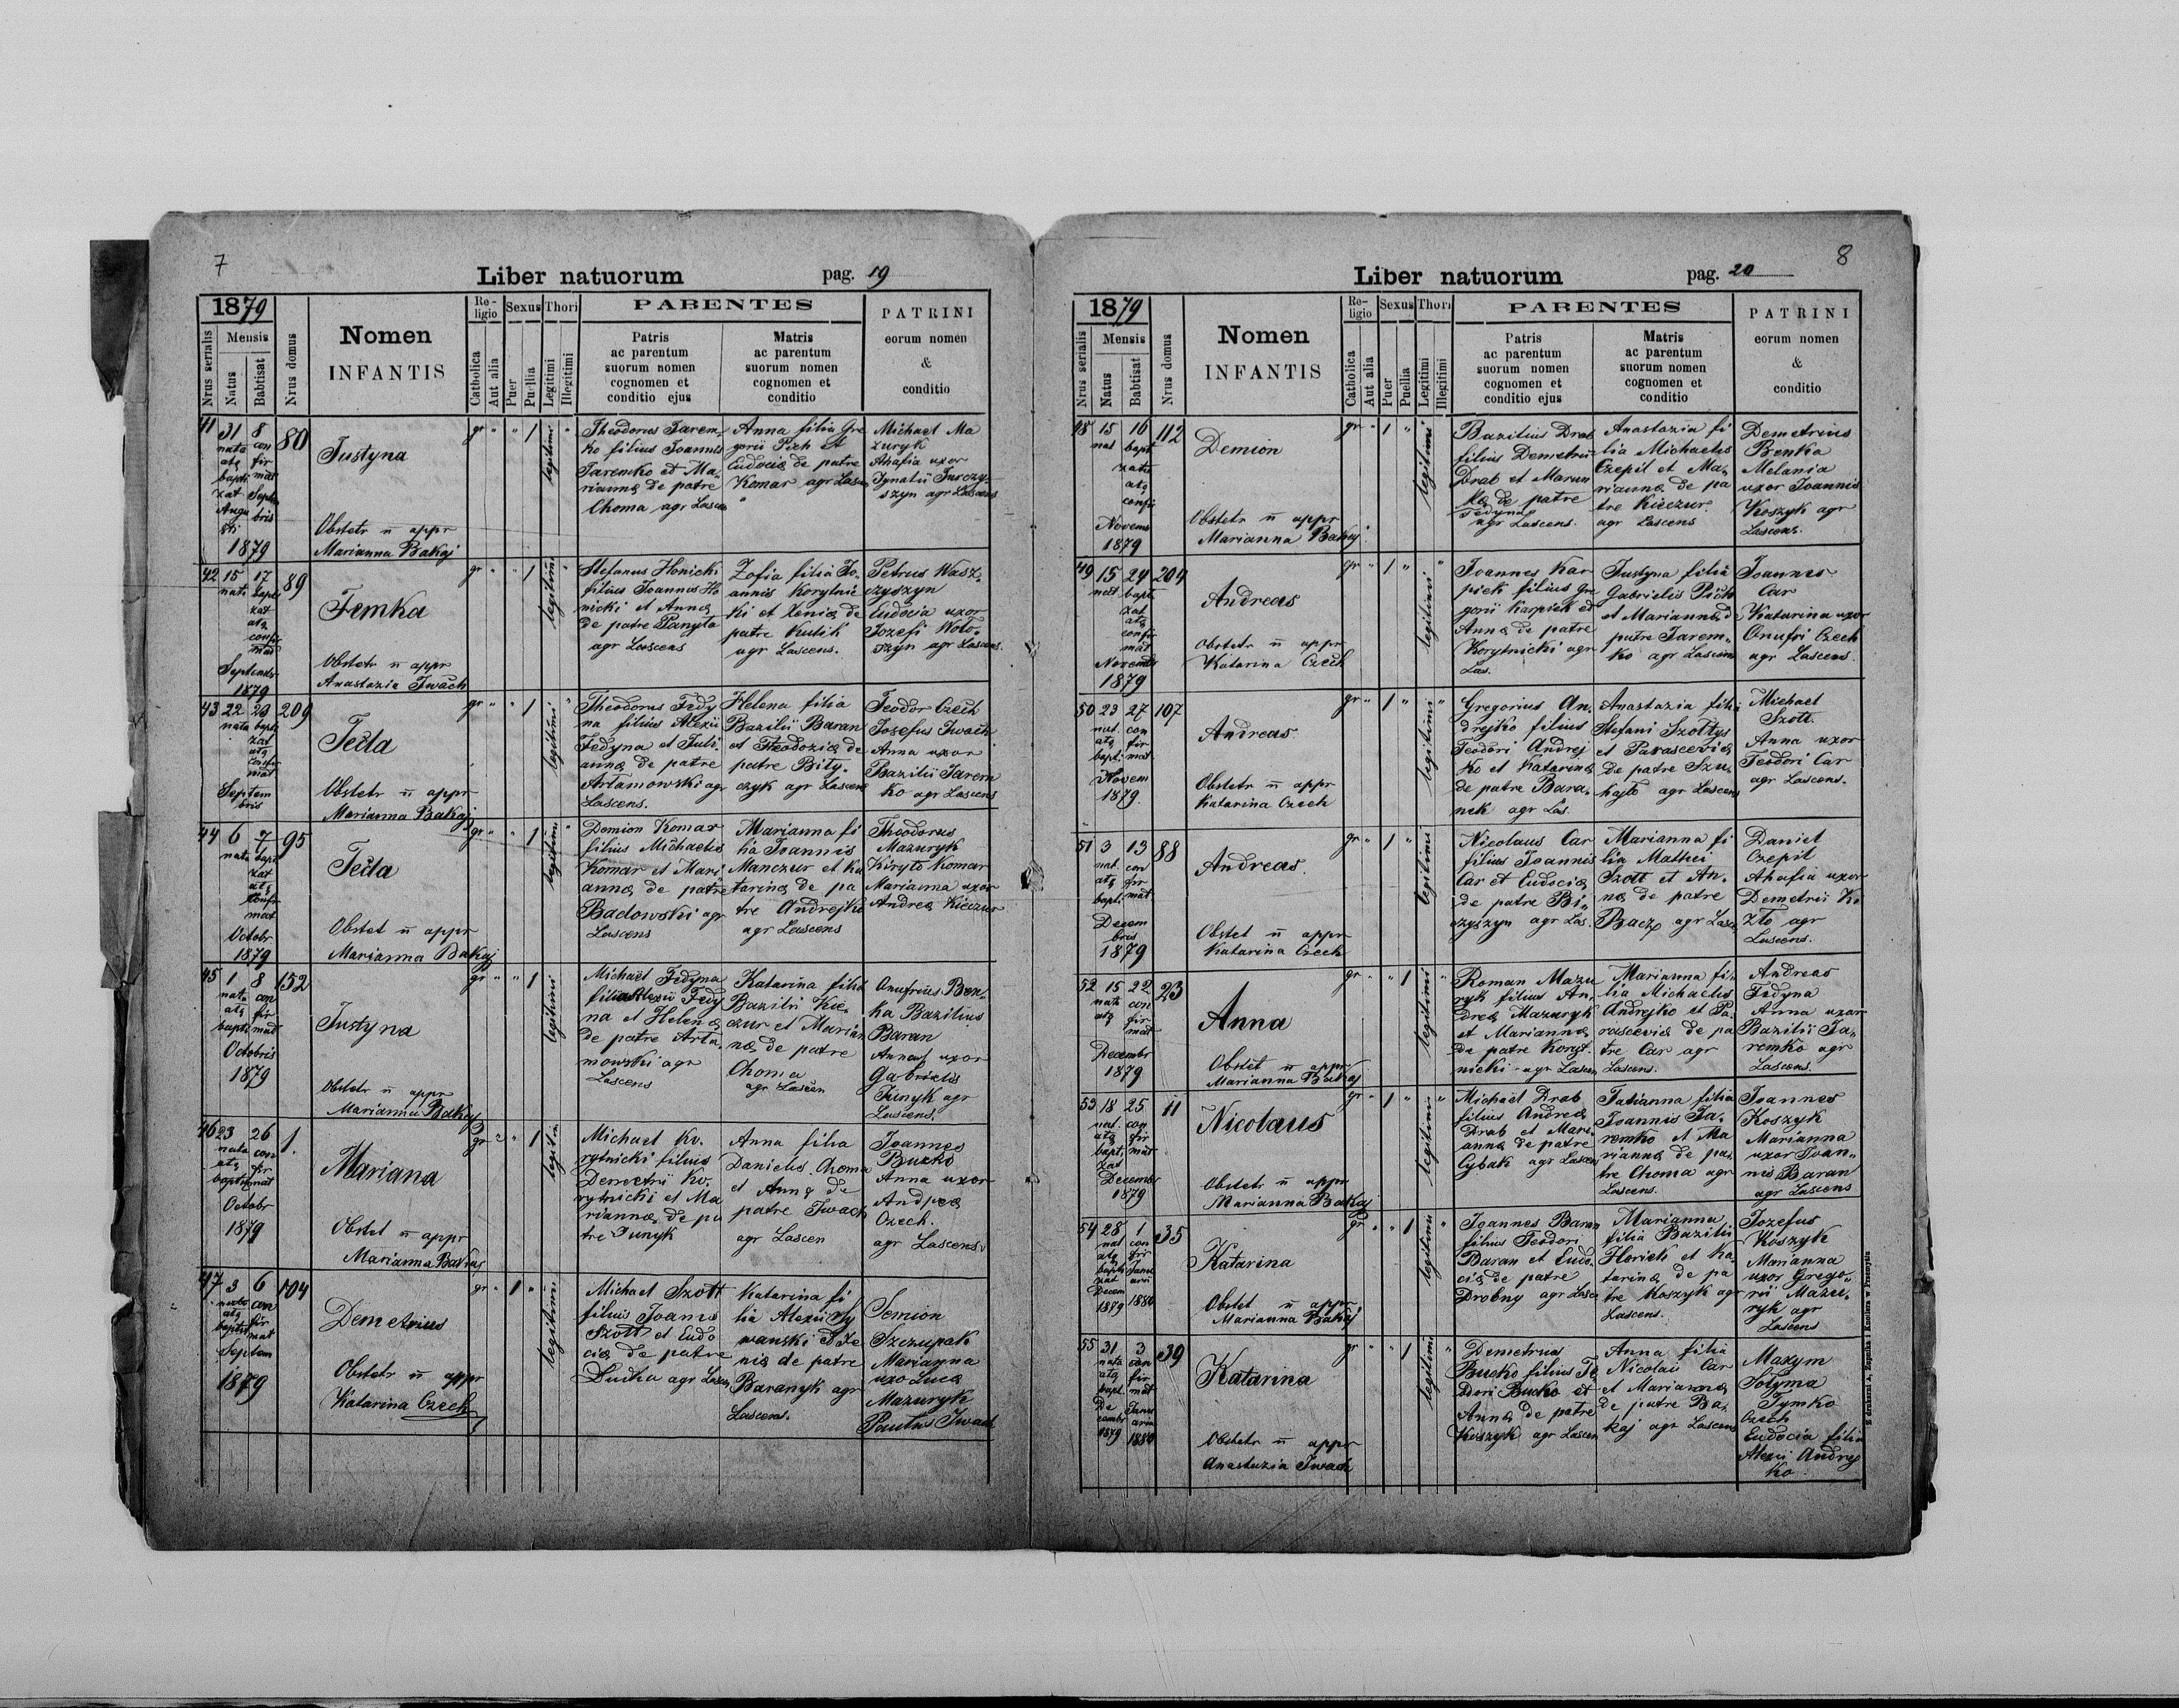 7
Liber natuorum
pag. 19
1879
Nrus serialis
Mensis
Natus
Babtisat
Nrus domus
Nomen
INFANTIS
Re-
ligio
Catholica
Aut alia
Sexus
Puer
Puellia
Thori
Legitimi
Illegitimi
PARENTES
Patris
ac parentum
suorum nomen
cognomen et
conditio ejus
Matris
ac parentum
suorum nomen
cognomen et
conditio
PATRINI
eorum nomen
&
conditio
41
31 8
nata con
atq fir
bapti mat
zat Septe
Augu bris
sti
1879
80
Justyna
Obstetr n appr
Marianna Bakaj
gr " " 1 legitimi "
Theodorus Jarem
ko filius Joannis
Jaremko et Ma
rianna de patre
Choma agr Lascen
Anna filia Gre
gorii Pich et
Eudocia de patre
Komar agr Lascen
Michael Ma
zuryk
Ahafia uxor
Ignatii Jurczy
szyn agr Lascens
42
15 17
nata bapti
zat
atq
confir
mat
Septembr
1879
89
Femka
Obstetr n appr
Anastazia Iwach
gr " " 1 legitimi "
Stefanus Honicki
filius Joannis Ho
nicki et Anna
de patre Panyla
agr Lascens
Zofia filia Jo
annis Korytnic
ki et Xenia de
patre Kulik
agr Lascens.
Petrus Wasz
czyszyn
Eudocia uxor
Jozefi Woło
szyn agr Lascens.
43
22 23
nata bapti
zat
atq
confir
mat
Septem
bris
209
Tecla
Obstetr n appr
Marianna Bakaj
gr " " 1 legitimi "
Theodorus Fedy
na filius Alexii
Fedyna et Juli
anna de patre
Artamowski agr
Lascens.
Helena filia
Bazilii Baran
et Theodozia de
patre Bity
czyk agr Lascens
Feodor Czech
Josefus Iwach
Anna uxor
Bazilii Jarem
ko agr Lascens
44
6 7
nata bapti
zat
atq
confir
mat
Octobr
1879
95
Tecla
Obstet n appr
Marianna Bakaj
gr " " 1 legitimi "
Demion Komar
filius Michaelis
Komar et Mari
anna de patre
Badowski agr
Lascens
Marianna fi
lia Joannis
Manczur et Ka
tarina de pa
tre Andrejko
agr Lascens
Theodorus
Mazuryk
Kiryło Komar
Marianna uxor
Andrea Kiczur
45
1 8
nata con
atq fir
bapti mat
Octobris
1879
152
Justyna
Obstetr n appr
Marianna Bakaj
gr " " 1 legitimi
Michael Fedyna
filius Alexii Fedy
na et Helena
de patre Arta
mowski agr
Lascens
Katarina filia
Bazilii Kic
zur et Marian
na de patre
Choma
agr Lascen
Onufrius Ben
ka Bazilius
Baran
Anna uxor
Gabrielis
Junyk agr
Lascens.
46
23 26
nata con
atq fir
bapti mat
Octobr
1879
1.
Mariana
Obstet n appr
Marianna Bakaj
gr " " 1 legitim
Michael Ko
rytnicki filius
Demetrii Ko
rytnicki et Ma
rianna de pa
tre Junyk
Anna filia
Danielis Choma
et Anna de
patre Iwach
agr Lascen
Joannes
Bucko
Anna uxor
Andrea
Czech.
agr Lascens.
47
3 6
natus con
atq fir
baptiz mat
Septem
1879
104
Demetrius
Obstetr n appr
Katarina Czech
gr " 1 " legitimi
Michael Szott
filius Joannis
Szott et Eudo
cia de patre
Dutka agr Lascen
Katarina fi
lia Alexii Sy
wanski et Xe
nia de patre
Baranyk agr
Lascens.
Semion
Szczupak
Marianna
uxo Luca
Mazuryk
Paulus Iwach
8
Liber natuorum
pag. 20
1879
Nrus serialis
Mensis
Natus
Babtisat
Nrus domus
Nomen
INFANTIS
Re-
ligio
Catholica
Aut alia
Sexus
Puer
Puellia
Thori
Legitimi
Illegitimi
PARENTES
Patris
ac parentum
suorum nomen
cognomen et
conditio ejus
Matris
ac parentum
suorum nomen
cognomen et
conditio
PATRINI
eorum nomen
&
conditio
48
15 16
nat bapti
zatu
atq
confir
Novem
1879
112
Demion
Obstetr n appr
Marianna Bakaj
gr " 1 " legitimi
Bazilius Drab
filius Demetrii
Drab et Marun
ka de patre
Fedyna
agr Lascens.
Anastazia fi
lia Michaelis
Czepil et Ma
rianna de pa
tre Kiczur
agr Lascens
Demetrius
Benka
Melania
uxor Joannis
Koszyk agr
Lascens.
49
15 24
nat bapti
zat
atq
confir
mat
Novembr
1879
204
Andreas
Obstetr n appr
Katarina Czech
gr " 1 " legitimi "
Joannes Kar
piek filius Gre
gorii Karpiek et
Anna de patre
Korytnicki agr
Las.
Justyna filia
Gabrielis Pich
et Marianna d
patre Jarem
ko agr Lascens
Joannes
Car
Katarina uxor
Onufri Czech
agr Lascens.
50
23 27
nat. con
atq fir
bapt. mat
Novem
1879.
107
Andreas
Obstetr n appr
Katarina Czech
gr " 1 " legitimi "
Gregorius An
drejko filius
Teodori Andrej
ko et Katarina
de patre Bara
nek agr Las.
Anastazia filia
Stefani Szołtys
et Parascevia
de patre Szu
hajło agr Lascens
Michael
Szott
Anna uxor
Teodori Car
agr Lascens.
51
3 13
nat. con
atq fir
bapti mat.
Decem
bris
1879
88
Andreas.
Obstet n appr
Katarina Czech
gr " 1 " legitimi
Nicolaus Car
filius Joannis
Car et Eudocia
de patre Bi
szyszyn agr Las.
Marianna fi
lia Mathei
Szott et An
na de patre
Bacz agr Lasc
Daniel
Czepil
Ahafia uxor
Demetrii Ko
zło agr
Lascens.
52
15 22
nata con
atq fir
mat
Decembr
1879
23
Anna
Obstet n appr
Marianna Bakaj
gr " " 1 legitimi "
Roman Mazu
ryk filius An
drea Mazuryk
et Marianna
de patre Koryt
nicki agr Lascen
Marianna fi
lia Michaelis
Andrejko et Pa
rascevia de pa
tre Car agr
Lascens.
Andreas
Fedyna
Anna uxor
Bazilii Ja
remko agr
Lascens.
53
18 25
nat. con
atq fir
bapti mat
zat
Decembr
1879
11
Nicolaus
Obstetr n appr
Marianna Bakaj
gr " 1 " legitimi "
Michael Drab
filius Andrea
Drab et Mari
anna de patre
Cybak agr Lascen
Tatianna filia
Joannis Ja
remko et Ma
rianna de pa
tre Choma agr
Lascens.
Joannes
Koszyk
Marianna
uxor Joan
nis Baran
agr Lascens
54
28 1
nat con
atq fir
bapti Janu
zat arii
Decem
1879 1880
35
Katarina
Obstet n appr
Marianna Bakaj
gr " " 1 legitimi "
Joannes Baran
filius Teodori
Baran et Eudo
cia de patre
Drobny agr Lasce
Marianna
filia Bazilii
Horich et Ka
tarina de pa
tre Koszyk agr
Lascens.
Jozefus
Koszyk
Marianna
uxor Grego
rii Mazu
ryk agr
Lascens
55
31 3
nata con
atq fir
bapt mat
De Janu
cembr arii
1879 1880
39
Katarina
Obstetr n appr
Anastazia Iwach
gr " " 1 legitimi "
Demetrus
Bucko filius Te
dori Bucko et
Anna de patre
Koszyk agr Lascen
Anna filia
Nicolai Car
et Marianna
de patre Ba
kaj agr Lascens
Maxym
Sołyma
Tymko
Czech
Eudocia filia
Alexii Andrej
ko
Z drukarni A. Żupnika i Knollera w Przemyślu